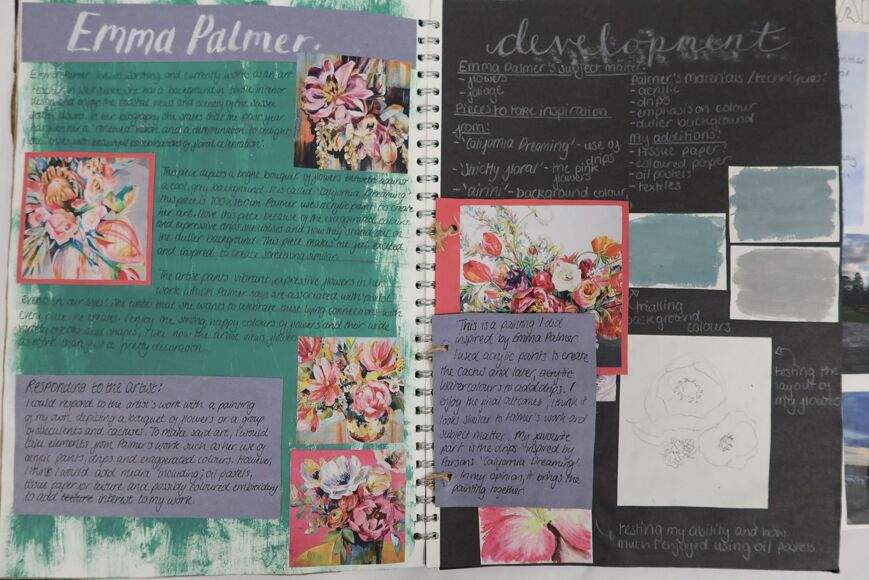 Emma Palmer.
Emma Palmer lives in Worthing and currently works as an art
teacher in West Sussex. She has a background in textile interior
design and enjoys the coastal views and scenery of the Sussex
South Downs. In her biography she states that the past year
has given her a 'renewed' vision and a determination to delight
the viewer with beautiful observations of floral celebration'.
The piece depicts a bright bouquet of flowers between against
a cool, grey background. It is called 'California Dreaming'.
This piece is 100x150cm. Palmer uses acrylic paint to create
her art. I love this piece because of the exaggerated colours
and expressive drips she uses and how they stand out on
the duller background. This piece makes me feel excited
and inspired to create something similar.
The artist paints vibrant, expressive flowers in her
work which Palmer says are associated with joyful
events in our lives'. She writes that she wants to celebrate these living connections with
every piece she creates. I enjoy the strong, happy colours of flowers and their wide
variety of colours and shapes, I like how the artist views flowers
as more than just a pretty decoration.
Responding to the artist:
I would respond to the artist's work with a painting
of my own depicting a bouquet of flowers or a group
of succulents and cactuses. To make said art, I would
take elements from Palmer's work such as her use of
acrylic paints, drips and exaggerated colours. However,
I think I would add media including; oil pastels,
tissue paper for texture and possibly coloured embroidery
to add texture interest to my work.
development
Emma Palmer's subject matter:
- flowers
- foliage
Pieces to take inspiration
from:
- 'California Dreaming' - use of
drips
- 'Strictly floral' - the pink
flowers
- background colour
Palmer's materials/techniques:
- acrylic
- drips
- emphasis on colour
- duller background
My additions:
- tissue paper
- coloured paper
- oil pastels
- textiles
trialling
background
colours
This is a painting I did
inspired by Emma Palmer.
I used acrylic paints to create
the cactus and later, acrylic
watercolours to add drips. I
enjoy the final outcomes, I think it
looks similar to Palmer's work and
subject matter. My favourite
part is the drips inspired by
Parsons' 'California Dreaming'.
In my opinion, it brings the
painting together.
testing the
layout of
my flowers
testing my ability and how
much I enjoyed using oil pastels